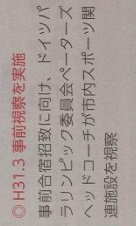 ◎H31.3 事前視察を実施
事前合宿招致に向け、ドイツパ
ラリンピック委員会ペーターズ
ヘッドコーチが市内スポーツ関
連施設を視察